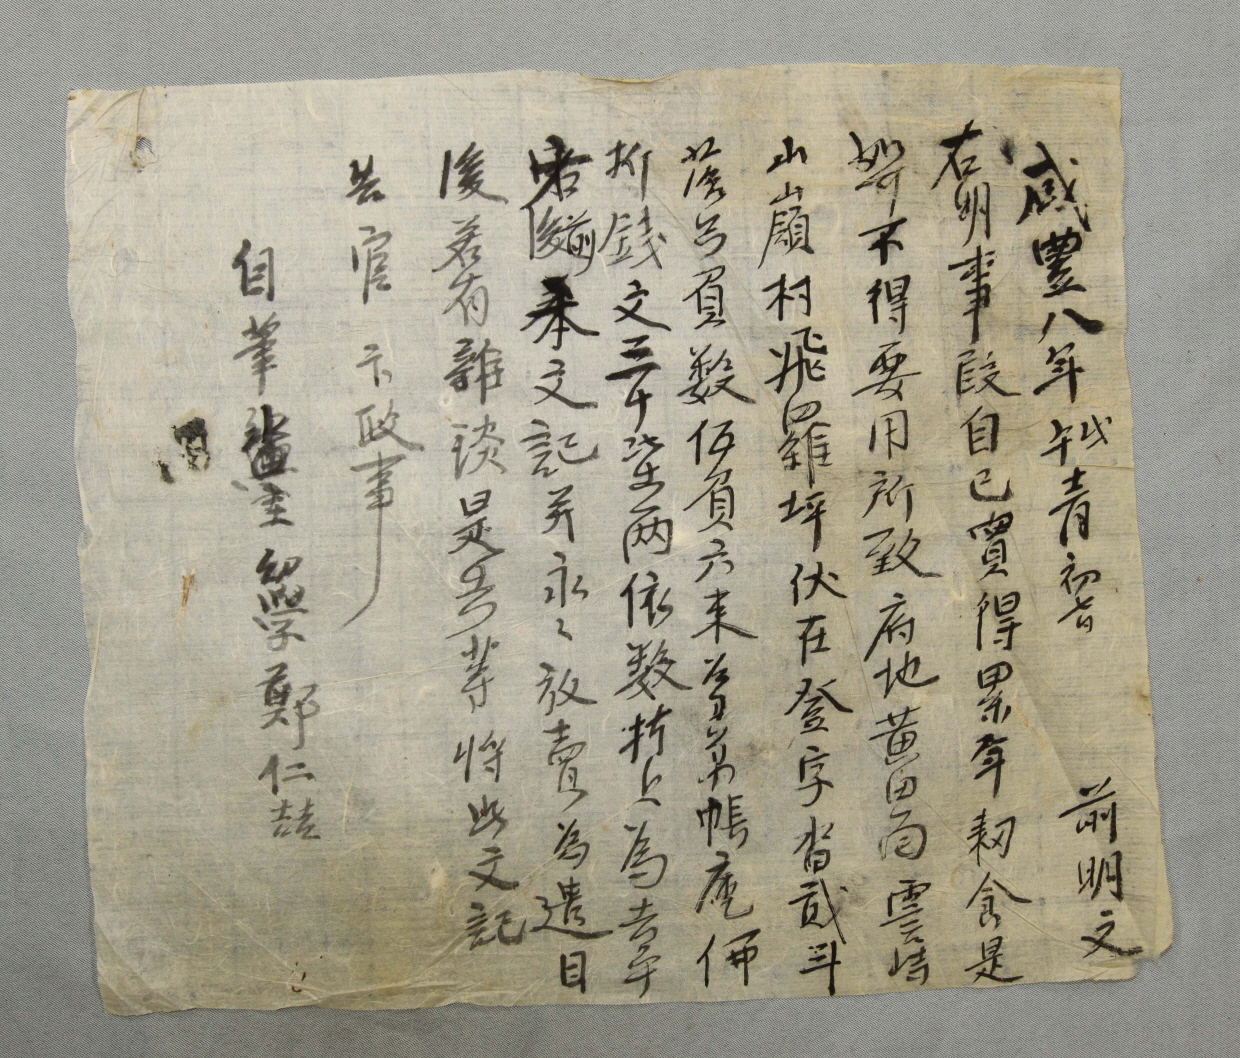 咸豊八年戊午十二月初七日 前明文
右明事段自己買得累年耕食是
如可不得要用所致府地黄田面雲峙
山嶺村飛羅坪伏在登字畓貳斗
落只負数伍負六束㐣価
折銭文三十柒両依数捧上為去乎
右前本文記并永〻放賣為遣日
後若有雜談是去等将此文記
告官卞政事
自筆畓主幼學鄭仁喆